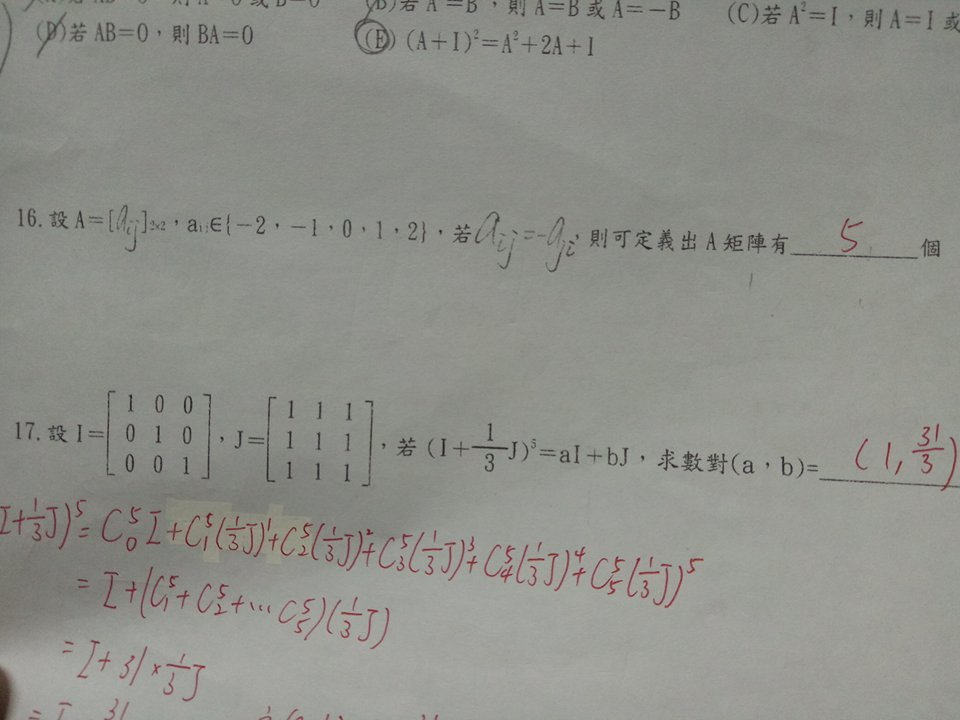 (B)若 A²=B²，則 A=B 或 A=-B (C)若 A²=I，則 A=I 或
(D)若 AB=0，則 BA=0 (E) (A+I)²=A²+2A+I
16. 設 A=[aij]2×2，aij∈{-2，-1，0，1，2}，若 aij=-aji，則可定義出 A 矩陣有 5 個
17. 設 I=[1 0 0
0 1 0
0 0 1]，J=[1 1 1
1 1 1
1 1 1]，若 (I+1/3 J)⁵=aI+bJ，求數對(a，b)= (1, 31/3)
I+1/3 J)⁵ = C⁵₀ I + C⁵₁(1/3 J)¹ + C⁵₂(1/3 J)² + C⁵₃(1/3 J)³ + C⁵₄(1/3 J)⁴ + C⁵₅(1/3 J)⁵
= I + (C⁵₁ + C⁵₂ + ... C⁵₅)(1/3 J)
= I + 31 × 1/3 J
= I 31